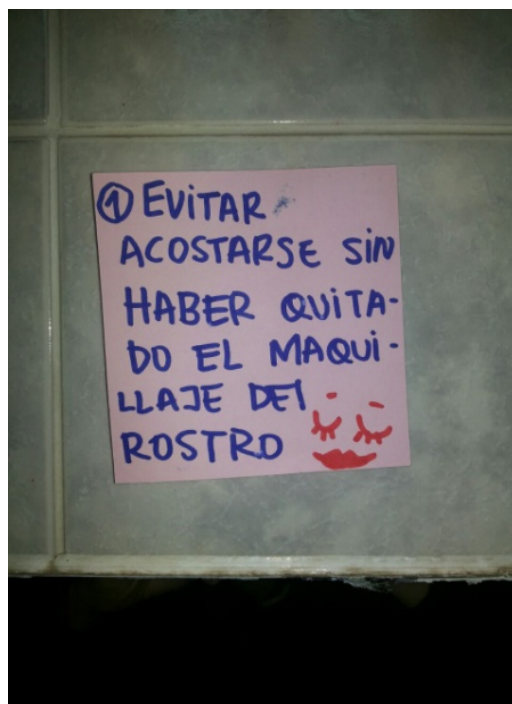 ① EVITAR
ACOSTARSE SIN
HABER QUITA-
DO EL MAQUI-
LLAJE DEl
ROSTRO